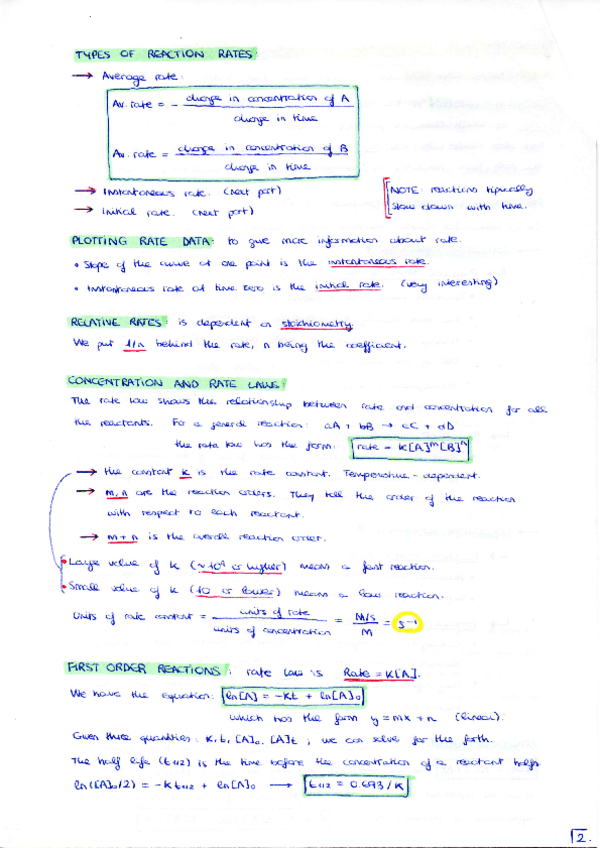 TYPES OF REACTION RATES:
→ Average rate:
Av. rate = - change in concentration of A / change in time
Av. rate = change in concentration of B / change in time
→ Instantaneous rate. (next part)
→ Initial rate. (next part)
NOTE: reactions tipically
slow down with time.
PLOTTING RATE DATA: to give more information about rate.
• Slope of the curve at one point is the instantaneous rate.
• Instantaneous rate at time zero is the initial rate. (very interesting)
RELATIVE RATES: is dependent on stoichiometry.
We put 1/n behind the rate, n being the coefficient.
CONCENTRATION AND RATE LAWS:
The rate law shows the relationship between rate and concentration for all
the reactants. For a general reaction: aA + bB → cC + dD
the rate law has the form: rate = K[A]^m[B]^n
→ the constant k is the rate constant. Temperature-dependent.
→ m, n are the reaction orders. They tell the order of the reaction
with respect to each reactant.
→ m + n is the overall reaction order.
• Large value of K (~10⁹ or higher) means a fast reaction.
• Small value of K (10 or lower) means a slow reaction.
Units of rate constant = units of rate / units of concentration = M/s / M = s⁻¹
FIRST ORDER REACTIONS: rate law is Rate = K[A].
We have the equation: ln[A] = -Kt + ln[A]₀
which has the form y = mx + n (linear).
Given three quantities: K, t, [A]₀, [A]t, we can solve for the forth.
The half life (t1/2) is the time before the concentration of a reactant halfs
ln([A]₀/2) = -K t1/2 + ln[A]₀ → t1/2 = 0.693/K
2.